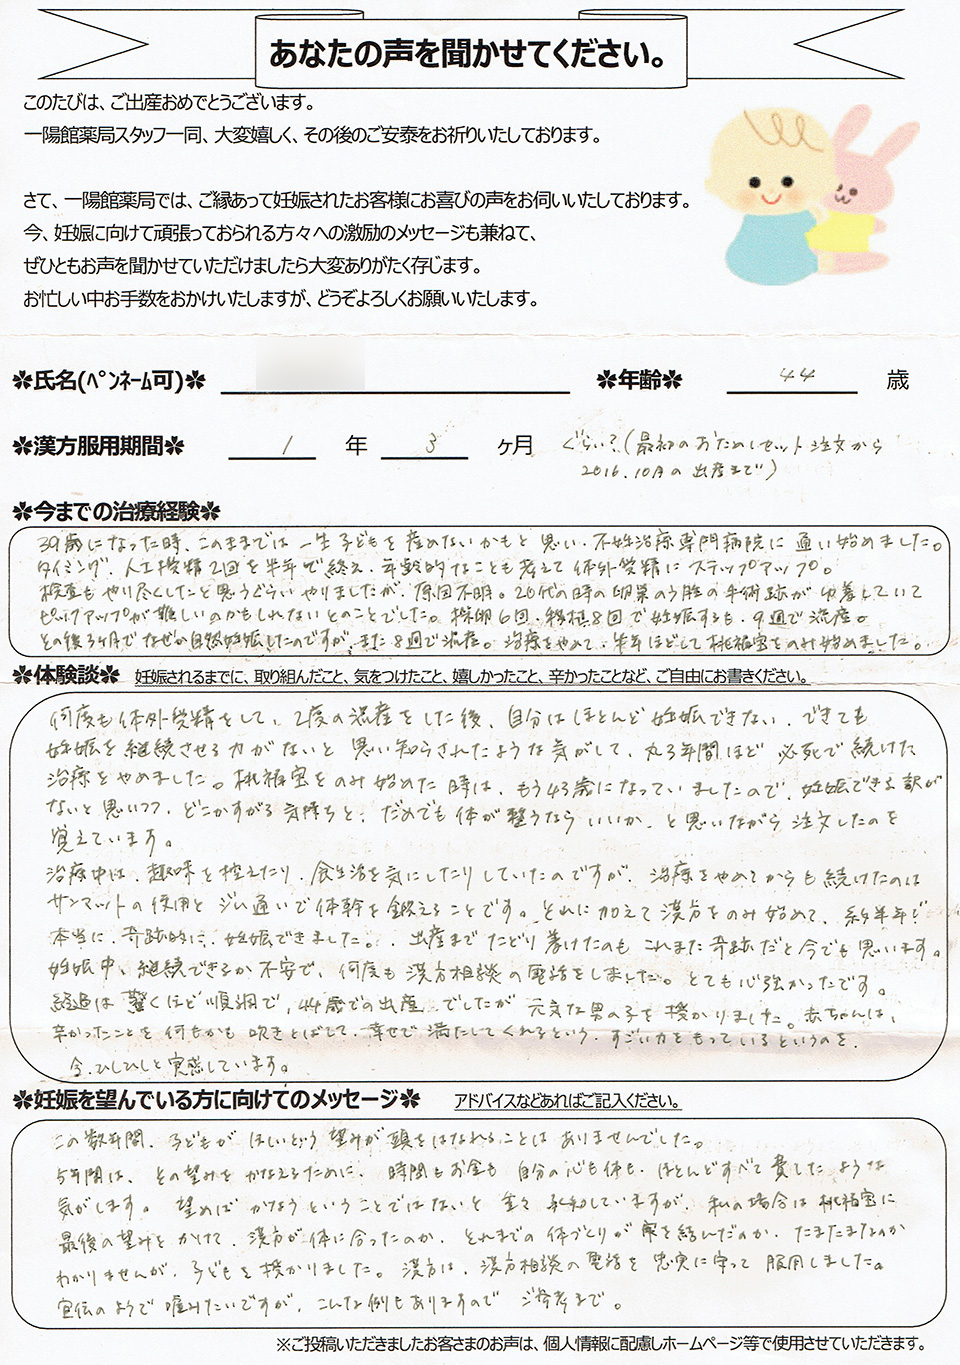 あなたの声を聞かせてください。
このたびは、ご出産おめでとうございます。
一陽館薬局スタッフ一同、大変嬉しく、その後のご安泰をお祈りいたしております。
さて、一陽館薬局では、ご縁あって妊娠されたお客様にお喜びの声をお伺いいたしております。
今、妊娠に向けて頑張っておられる方々への激励のメッセージも兼ねて、
ぜひともお声を聞かせていただけましたら大変ありがたく存じます。
お忙しい中お手数をおかけいたしますが、どうぞよろしくお願いいたします。
✽氏名(ペンネーム可)✽ ✽年齢✽ 44 歳
✽漢方服用期間✽ 1 年 3 ヶ月 ぐらい?(最初のおためしセット注文から
2016.10月の出産まで)
✽今までの治療経験✽
39歳になった時、このままでは一生子どもを産めないかもと思い、不妊治療専門病院に通い始めました。
タイミング、人工授精2回を半年で終え、年齢的なことも考えて体外受精にステップアップ。
検査もやり尽くしたと思うぐらいやりましたが、原因不明。20代の時の卵巣のう腫の手術跡が癒着していて
ピックアップが難しいのかもしれないとのことでした。採卵6回、移植8回で妊娠するも、9週で流産。
その後3ヶ月でなぜか自然妊娠したのですが、また8週で流産。治療をやめて、半年ほどして桃福宝をのみ始めました。
✽体験談✽ 妊娠されるまでに、取り組んだこと、気をつけたこと、嬉しかったこと、辛かったことなど、ご自由にお書きください。
何度も体外受精をして、2度の流産をした後、自分はほとんど妊娠できない、できても
妊娠を継続させる力がないと思い知らされたような気がして、丸3年間ほど必死で続けた
治療をやめました。桃福宝をのみ始めた時は、もう43歳になっていましたので、妊娠できる訳が
ないと思いつつ、どこかすがる気持ちと、だめでも体が整うならいいか、と思いながら注文したのを
覚えています。
治療中は、趣味を控えたり、食生活を気にしたりしていたのですが、治療をやめてからも続けたのは
サンマットの使用とジム通いで体幹を鍛えることです。それに加えて漢方をのみ始めて、約半年で
本当に、奇跡的に、妊娠できました。出産までたどり着けたのもこれまた奇跡だと今でも思います。
妊娠中、継続できるか不安で、何度も漢方相談の電話をしました。とても心強かったです。
経過は驚くほど順調で、44歳での出産でしたが元気な男の子を授かりました。赤ちゃんは、
辛かったことを何もかも吹きとばして、幸せで満たしてくれるという、すごい力をもっているというのを、
今、ひしひしと実感しています。
✽妊娠を望んでいる方に向けてのメッセージ✽ アドバイスなどあればご記入ください。
この数年間、子どもがほしいという望みが頭をはなれることはありませんでした。
5年間は、その望みをかなえるために、時間もお金も自分の心も体も、ほとんどすべて費したような
気がします。望めばかなうということではないと重々承知していますが、私の場合は桃福宝に
最後の望みをかけて、漢方が体に合ったのか、それまでの体づくりが実を結んだのか、たまたまなのか
わかりませんが、子どもを授かりました。漢方は、漢方相談の電話を忠実に守って服用しました。
宣伝のようで嘘みたいですが、こんな例もありますのでご参考まで。
※ご投稿いただきましたお客さまのお声は、個人情報に配慮しホームページ等で使用させていただきます。